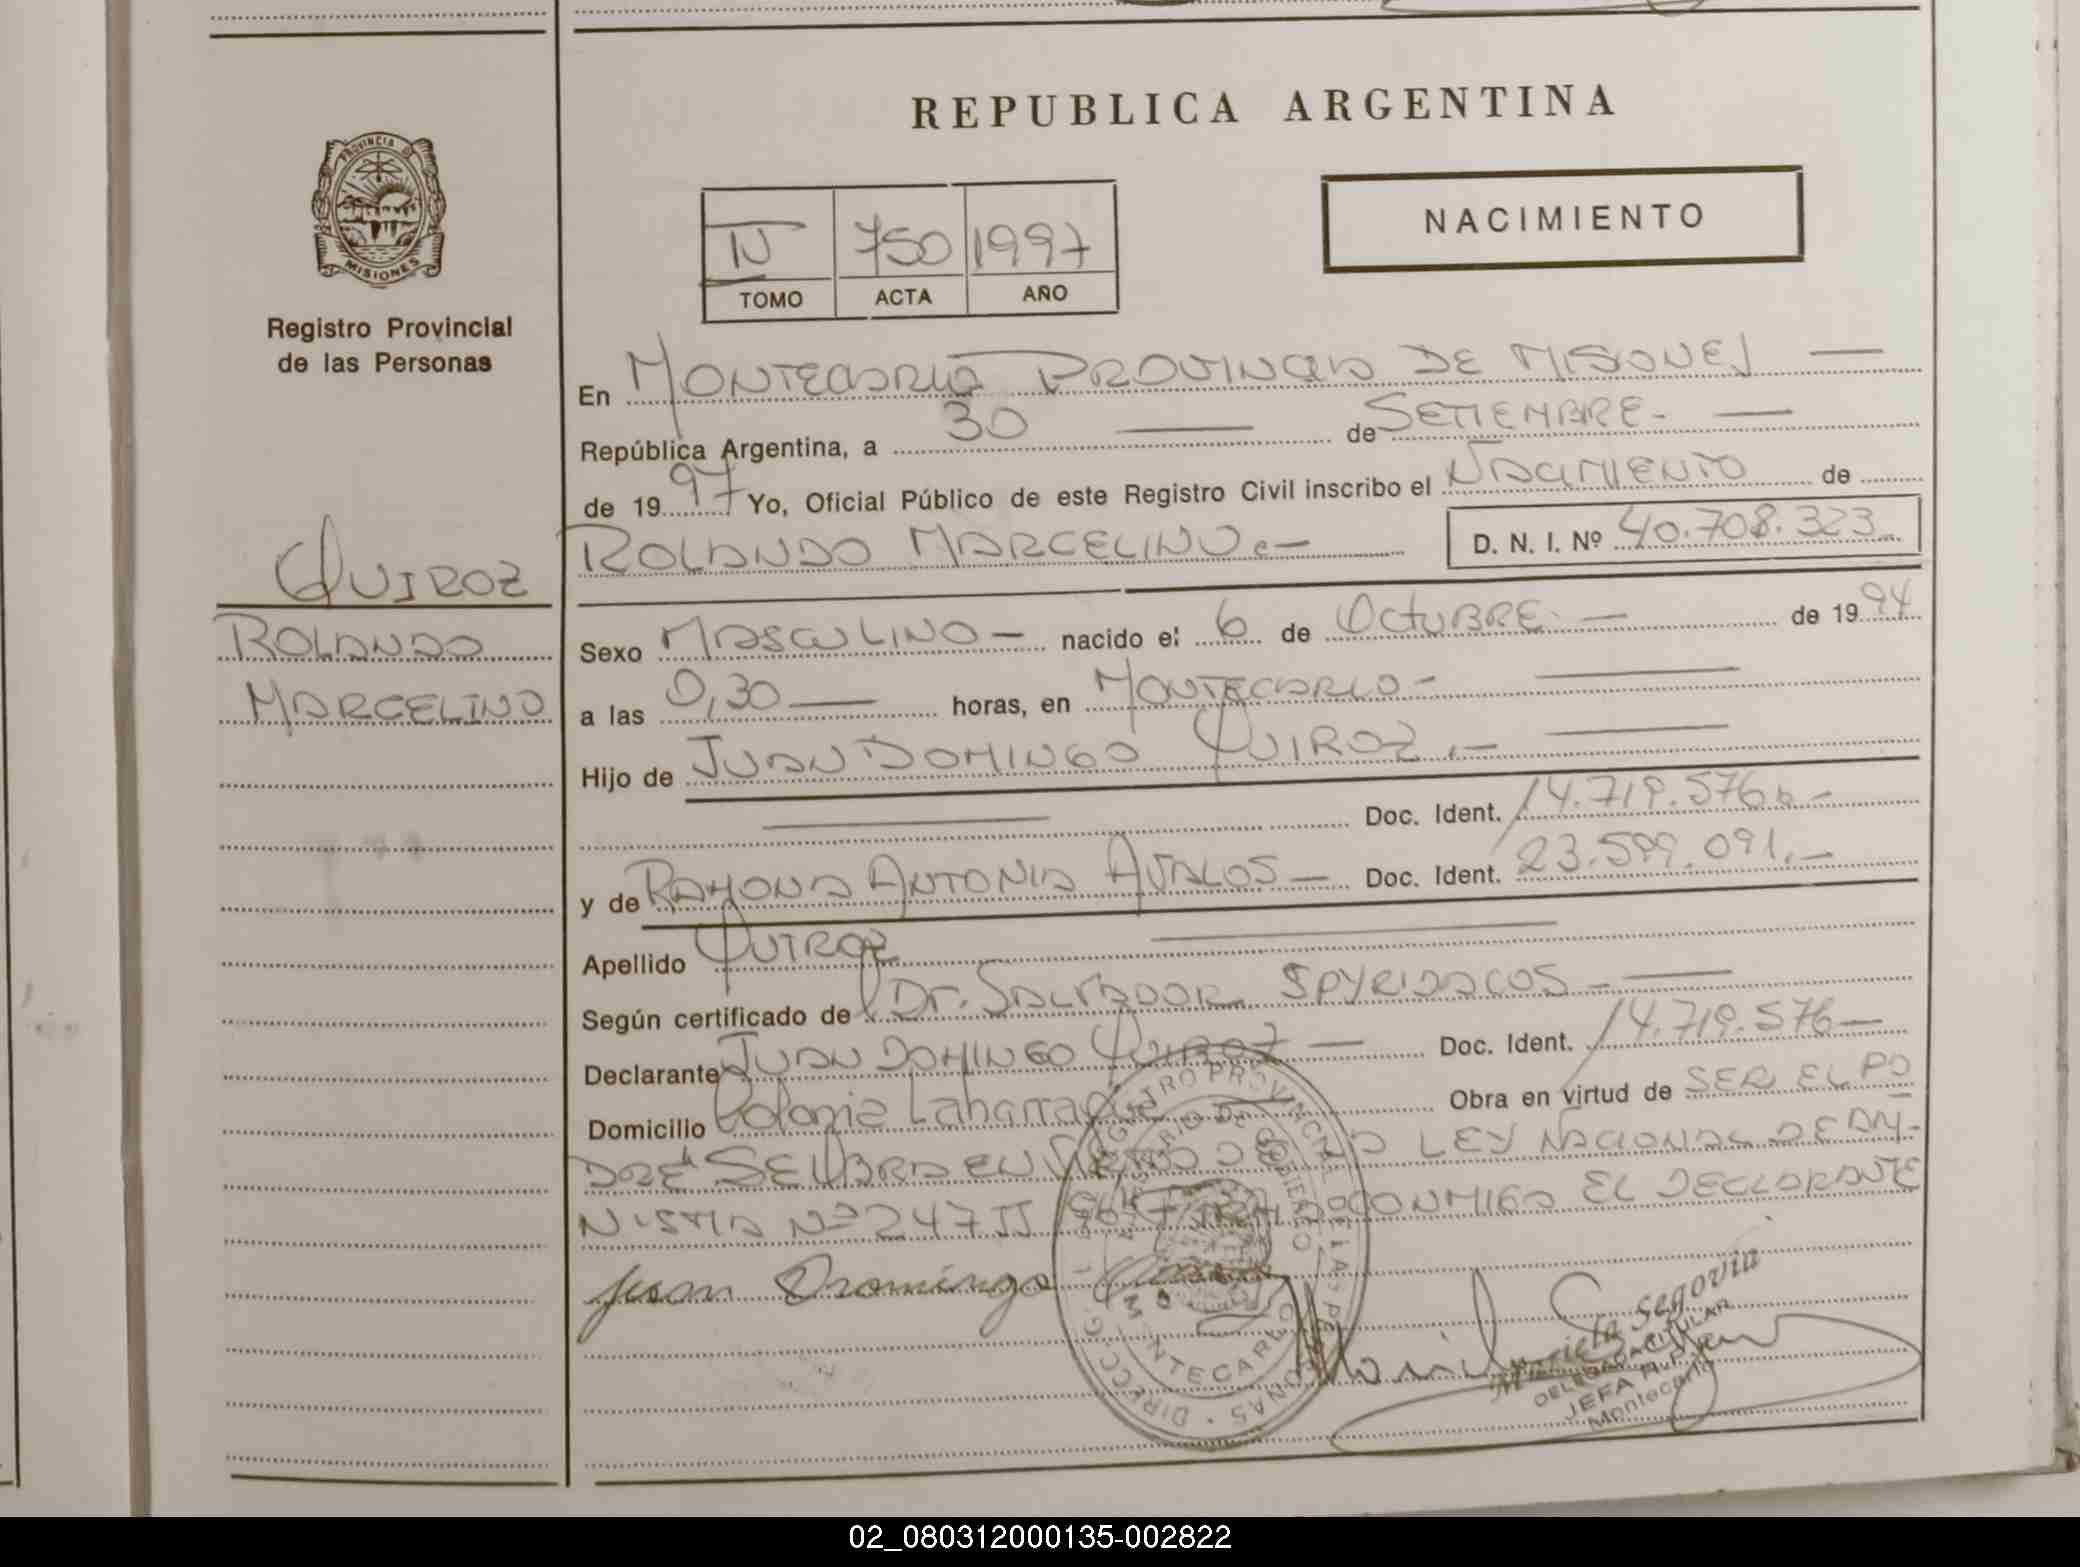 REPUBLICA ARGENTINA
PROVINCIA DE
MISIONES
Registro Provincial
de las Personas
NACIMIENTO
IV 750 1997
TOMO ACTA AÑO
En MONTECARLO PROVINCIA DE MISIONES —
República Argentina, a 30 — de SETIEMBRE. —
de 1997 Yo, Oficial Público de este Registro Civil inscribo el NACIMIENTO de
ROLANDO MARCELINO.— D. N. I. Nº 40.708.323
QUIROZ
ROLANDO
MARCELINO
Sexo MASCULINO — nacido el 6 de OCTUBRE. — de 1994
a las 0,30 — horas, en MONTECARLO - —
Hijo de JUAN DOMINGO QUIROZ.— —
— Doc. Ident. 14.719.576.-
y de RAMONA ANTONIA AVALOS — Doc. Ident. 23.599.091.—
Apellido QUIROZ —
Según certificado de Dr. SALVADOR SPYRIDACOS - —
Declarante JUAN DOMINGO QUIROZ — Doc. Ident. 14.719.576—
Domicilio Colonia Laharrague — Obra en virtud de SER EL PA
DRE SE LABRA EN LEY NACIONAL DE AM-
NISTIA Nº 247 CONMIGO EL DECLARANTE
Juan Domingo
REGISTRO PROVINCIAL DE LAS PERSONAS
DIRECC. G.
MONTECARLO
Marcela Segovia
DELEGADA TITULAR
JEFA R. P.
Montecarlo
02_080312000135-002822